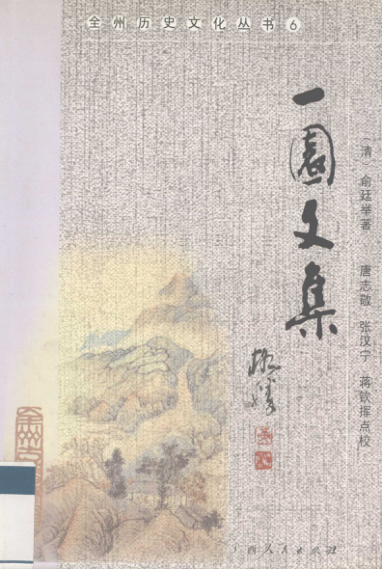 全州历史文化丛书6
一园文集
（清）俞廷举著 唐志敬 张汉宁 蒋钦挥点校
广西人民出版社